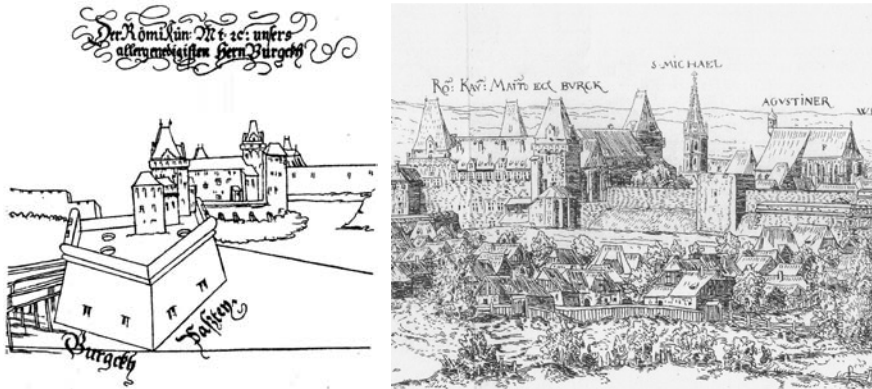 Der Römi Kün: Mt: ꝛc: unsers
allergenedigisten Hern Burgckh
Burgckh
Pasteÿ.
Rö: Kay: Maitt ECt BURCK
S. MICHAEL
AGVSTINER